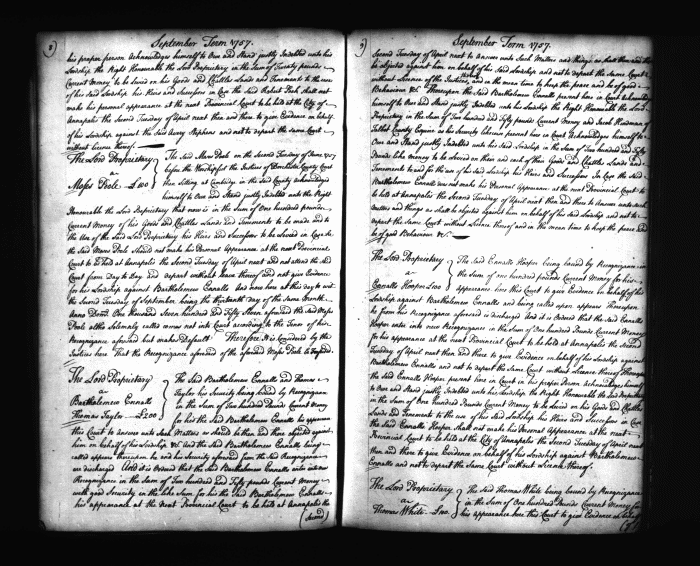 September Term 1757.
his proper person acknowledges himself to Owe and Stand justly Indebted unto his
Lordship the Right Honourable the Lord Proprietary in the Sum of Twenty pounds
Current Money to be levied on his Goods and Chattles Lands and Tenements to the use
of his said Lordship his Heirs and Successors in Case the said Robert Polk shall not
make his personal appearance at the next Provincial Court to be held at the City of
Annapolis the Second Tuesday of April next then and there to give Evidence on behalf
of his Lordship against the said and not to depart the same Court
without licence thereof.
The Lord Proprietary
a
Moses Poole £100
The said Moses Poole on the Second Tuesday of June 1757
before the Worshipfull the Justices of Dorchester County Court
then sitting at Cambridge in the said County acknowledged
himself to Owe and Stand justly Indebted unto the Right
Honourable the Lord Proprietary that now is in the sum of One hundred pounds
Current Money of his Goods and Chattles Lands and Tenements to be made and to
the Use of the said Lord Proprietary his Heirs and Successors to be levied in Case he
the said Moses Poole should not make his Personal Appearance at the next Provincial
Court to be held at Annapolis the Second Tuesday of and not attend the said
Court from Day to Day and depart without leave thereof and not give Evidence
for his Lordship against Bartholomew Ennalls And now here at this day to wit
the Second Tuesday of September being the thirteenth day of the same Month
Anno Domini One thousand Seven hundred and Fifty Seven aforesaid the said Moses
Poole altho Solemnly called comes not into Court according to the Tenor of his
Recognizance aforesaid but makes default. Therefore It is Considered by the
Justices here that the Recognizance aforesaid of the aforesaid Moses Poole be
The Lord Proprietary
a
Bartholomew Ennalls
Thomas Taylor £200
The said Bartholomew Ennalls and Thomas
Taylor his Security being bound by Recognizance
in the Sum of Two hundred Pounds Current Money
for his the said Bartholomew Ennalls his appearance
this Court to answer unto such Matters as should be then and there objected against
him on behalf of his Lordship &c. And the said Bartholomew Ennalls being
called appears thereupon he and his Security aforesaid from the said Recognizance
are discharged And it is Ordered that the said Bartholomew Ennalls enter into new
Recognizance in the Sum of Two hundred and Fifty pounds Current Money
with good Security in the like Sum for his the said Bartholomew Ennalls
his appearance at the next Provincial Court to be held at Annapolis the
Second
September Term 1757.
Second Tuesday of April next to answer unto Such Matters and things as shall then and there
be objected against him on behalf of his said Lordship and not to depart the Same Court
without Licence of the Justices and in the mean time to keep the peace and be of good
Behaviour &c. Thereupon the said Bartholomew Ennalls present here in Court acknowledges
himself to Owe and Stand justly Indebted unto his Lordship the Right Honourable the Lord
Proprietary in the Sum of Two hundred and Fifty pounds Current Money and
Talbot County Esquire as his Security likewise present here in Court acknowledges himself to
Owe and Stand justly Indebted unto his said Lordship in the Sum of Two hundred and Fifty
Pounds like Money to be levied on them and each of their Goods and Chattles Lands and
Tenements to and for the use of his said Lordship his Heirs and Successors In Case the said
Bartholomew Ennalls does not make his Personal Appearance at the next Provincial Court to
be held at Annapolis the Second Tuesday of April next and there to Answer unto such
Matters and things as shall be objected against him on behalf of his said Lordship and not to
depart the same Court without Licence thereof and in the mean time to keep the peace and
be of good Behaviour &c.
The Lord Proprietary
a
Ennalls Hooper £100
The Said Ennalls Hooper being bound by Recognizance in
the Sum of One hundred pounds Current Money for his
appearance here this Court to give Evidence on behalf of his
Lordship against Bartholomew Ennalls and being called upon appears Thereupon
he from his Recognizance aforesaid is discharged And it is Ordered that the said Ennalls
Hooper enter into new Recognizance in the Sum of One hundred Pounds Current Money
for his appearance at the next Provincial Court to be held at Annapolis the Second
Tuesday of April next then and there to give Evidence on behalf of his Lordship against
Bartholomew Ennalls and not to depart the Same Court without Licence thereof Thereupon
the said Ennalls Hooper present here in Court in his proper Person acknowledges himself
to Owe and Stand justly Indebted unto his Lordship the Right Honourable the Lord Proprietary
in the Sum of One hundred Pounds Current Money to be levied on his Goods and Chattles
Lands and Tenements to the use of his said Lordship his Heirs and Successors in Case
the said Ennalls Hooper shall not make his Personal Appearance at the next
Provincial Court to be held at the City of Annapolis the Second Tuesday of April next
then and there to give Evidence on behalf of his Lordship against Bartholomew
Ennalls and not to depart the Same Court without Licence thereof.
The Lord Proprietary
a
Thomas White £100
The Said Thomas White being bound by Recognizance
in the Sum of One hundred Pounds Current Money for
his appearance here this Court to give Evidence on behalf